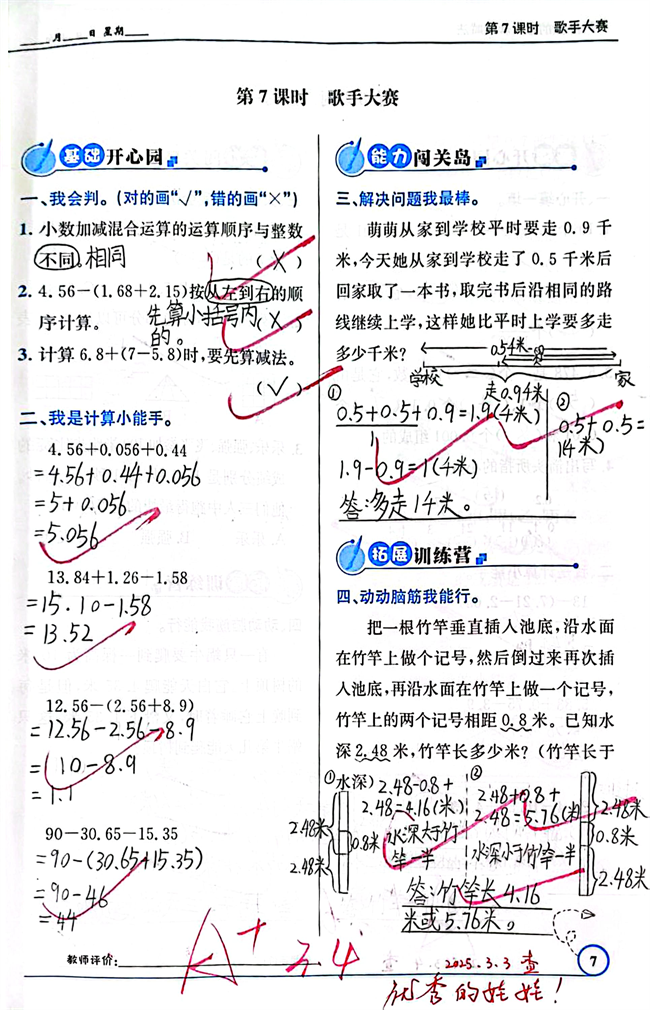 月 日 星期
第7课时 歌手大赛
第7课时 歌手大赛
基础开心园
一、我会判。(对的画"√",错的画"×")
1. 小数加减混合运算的运算顺序与整数
不同。相同 (×)
2. 4.56-(1.68+2.15)按从左到右的顺
序计算。 先算小括号内的。 (×)
3. 计算6.8+(7-5.8)时,要先算减法。
(√)
二、我是计算小能手。
4.56+0.056+0.44
=4.56+0.44+0.056
=5+0.056
=5.056
13.84+1.26-1.58
=15.10-1.58
=13.52
12.56-(2.56+8.9)
=12.56-2.56-8.9
=10-8.9
=1.1
90-30.65-15.35
=90-(30.65+15.35)
=90-46
=44
教师评价:
A+ 34
能力闯关岛
三、解决问题我最棒。
萌萌从家到学校平时要走0.9千
米,今天她从家到学校走了0.5千米后
回家取了一本书,取完书后沿相同的路
线继续上学,这样她比平时上学要多走
多少千米?
学校 家
①
0.5+0.5+0.9=1.9(千米)
1.9-0.9=1(千米)
答:多走1千米。
②
0.5+0.5=
1(千米)
拓展训练营
四、动动脑筋我能行。
把一根竹竿垂直插入池底,沿水面
在竹竿上做个记号,然后倒过来再次插
入池底,再沿水面在竹竿上做一个记号,
竹竿上的两个记号相距0.8米。已知水
深2.48米,竹竿长多少米?(竹竿长于
水深)
① 2.48-0.8+
2.48=4.16(米)
水深大于竹
竿一半
2.48米
0.8米
2.48米
② 2.48+0.8+
2.48=5.76(米)
水深小于竹竿一半
2.48米
0.8米
2.48米
答:竹竿长4.16
米或5.76米。
7
2025.3.3 查
优秀的娃娃!